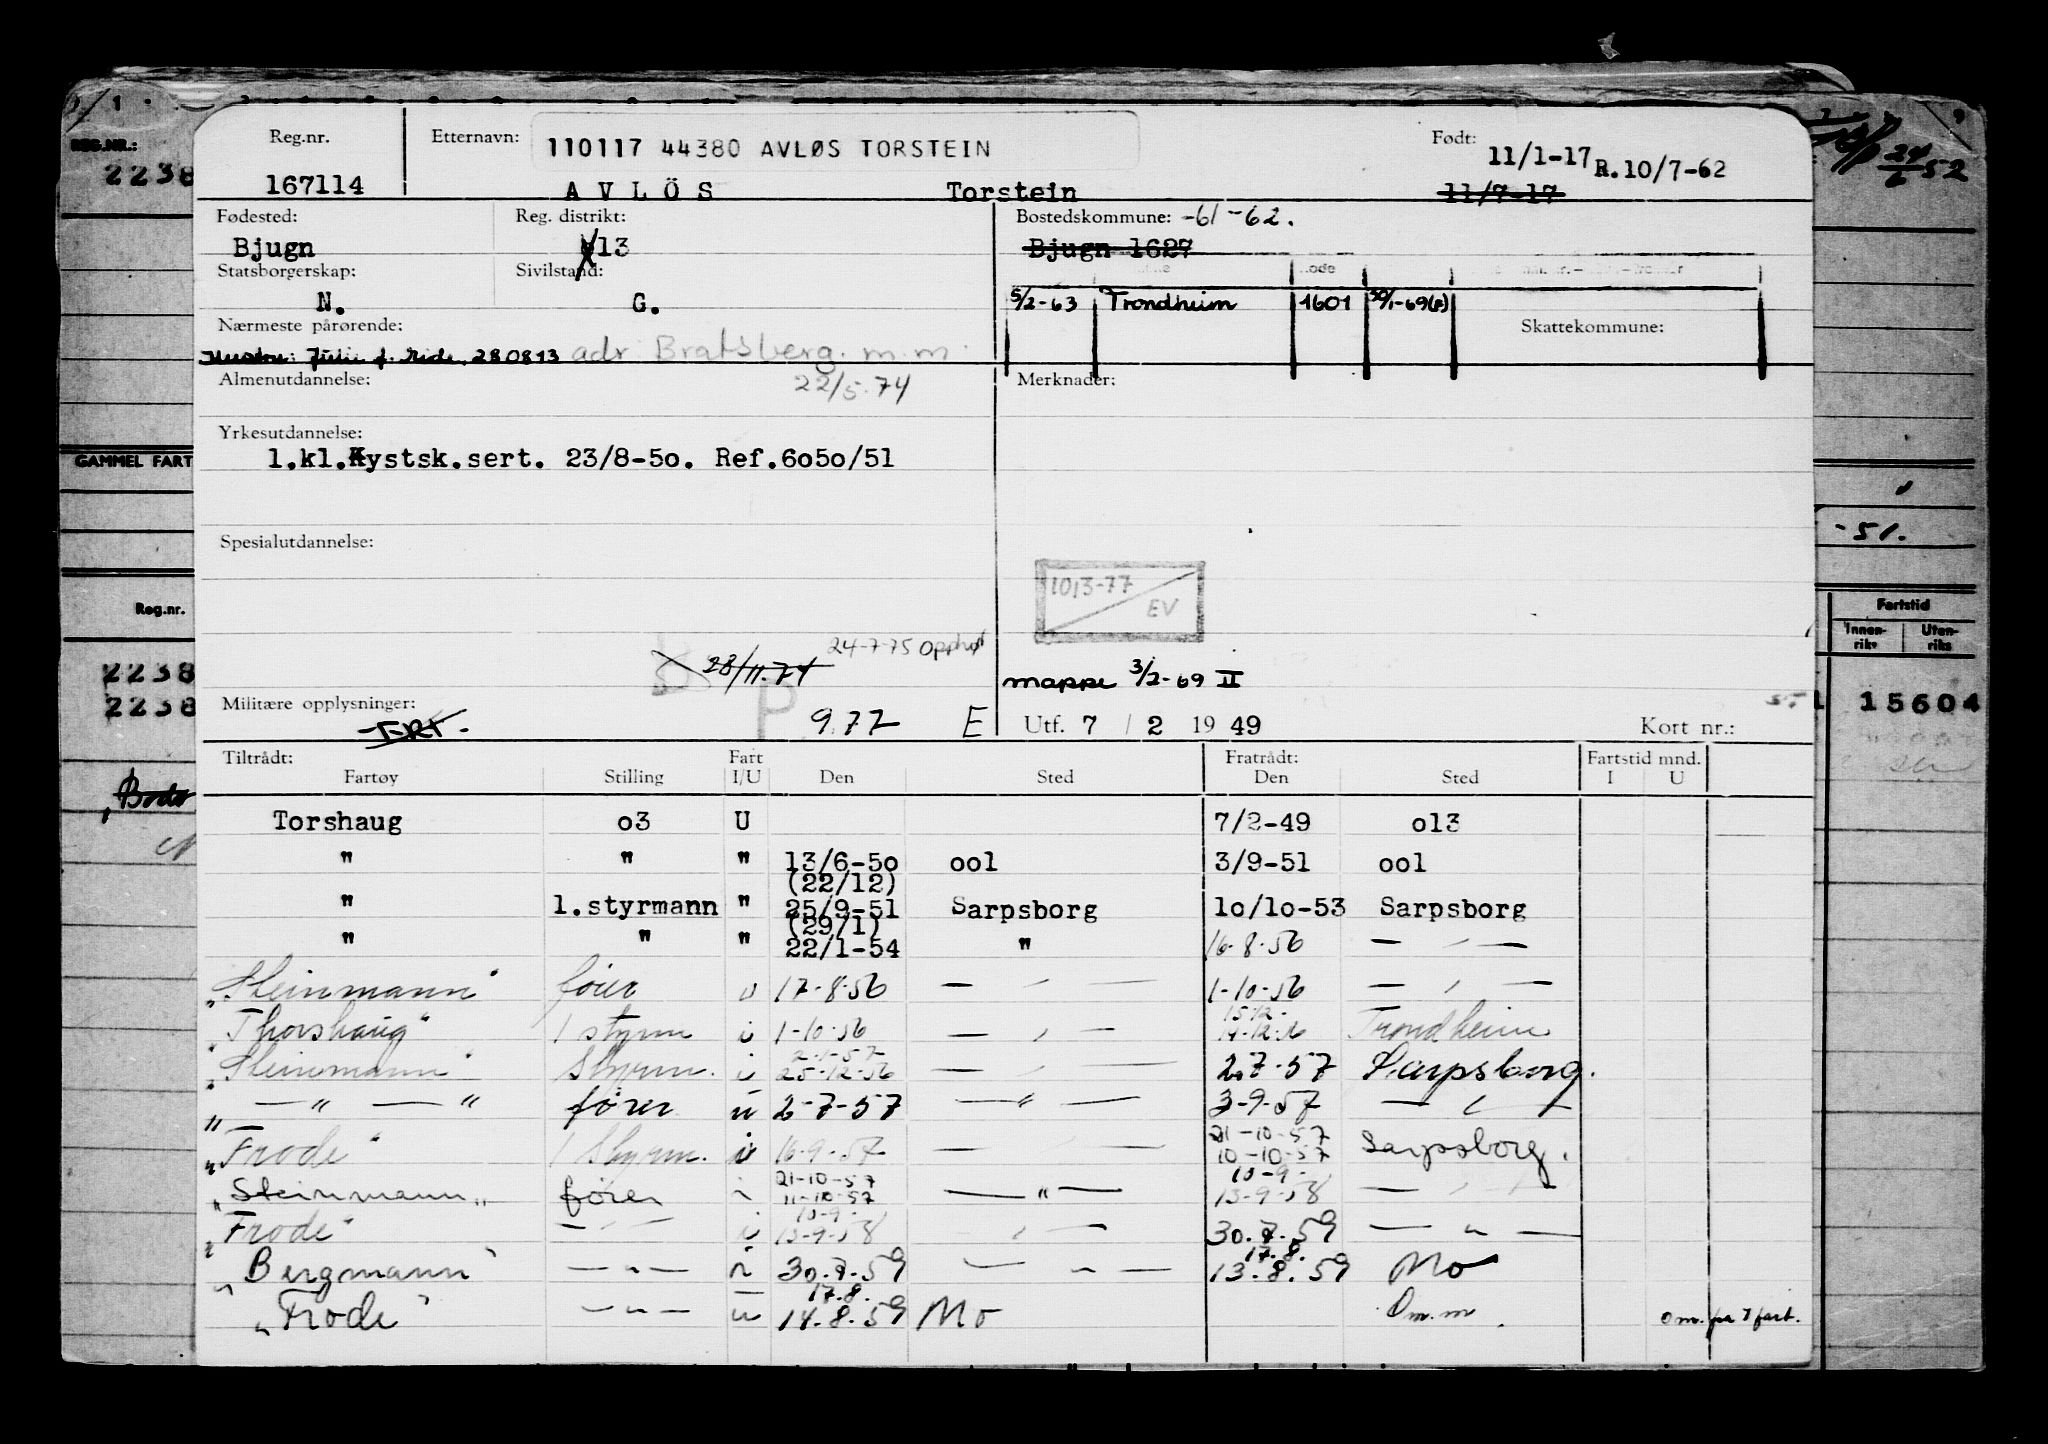 Reg.nr. Etternavn: 110117 44380 AVLØS TORSTEIN Født: 11/1-17 R.10/7-62
167114 AVLÖS Torstein 11/7-17
Fødested: Reg. distrikt: Bostedskommune: -61-62.
Bjugn 13 Bjugn 1627
Statsborgerskap: Sivilstand:
N. G. 5/2-63 Trondheim 1601 30/1-69(P)
Nærmeste pårørende: Skattekommune:
280813 adr Bratsberg. m.m.
Almenutdannelse: 22/5.74 Merknader:
Yrkesutdannelse:
1.kl.Kystsk.sert. 23/8-5o. Ref.6o5o/51
Spesialutdannelse:
1013-77
EV
24-7-75 Opphør
28/11.74 mappe 3/2-69 II
Militære opplysninger: P 9.77 E Utf. 7 / 2 19 49 Kort nr.:
Tiltrådt: Fart Fratrådt: Fartstid mnd.
Fartøy Stilling I/U Den Sted Den Sted I U
Torshaug o3 U 7/2-49 o13
" " " 13/6-5o oo1 3/9-51 oo1
(22/12)
" 1.styrmann " 25/9-51 Sarpsborg 1o/1o-53 Sarpsborg
(29/1)
" " " 22/1-54 " 16-8-56 — " —
"Steinmann" fører u 17-8-56 — " — 1-10-56 — " —
15.12.
"Thorshaug" 1 styrm i 1-10-56 — " — 14-12-56 Trondheim
2-1-57
"Steinmann" Styrm. i 25-12-56 — " — 2.7-57 Sarpsborg.
— " — " fører u 2-7-57 — " — 3-9-57 — " —
21-10-57
"Frode" 1 Styrm. i 16-9-57 — " — 10-10-57 Sarpsborg.
21-10-57 10-9-
"Steinmann" fører i 11-10-57 — " — 13-9-58 — " —
10-9-
"Frode" — " — i 13-9-58 — " — 30.7.59 — " —
17.8.
"Bergmann" — " — i 30.7.59 — " — 13.8.59 Mo
17.8.
"Frode" — " — u 14.8.59 Mo Om.m. Om. fra 7 fart.
REG.NR.:
2238
GAMMEL FART
Reg.nr.
2238
2238
Bodø
24/6 52
-51.
Fartstid
Innen-riks Uten-riks
15604